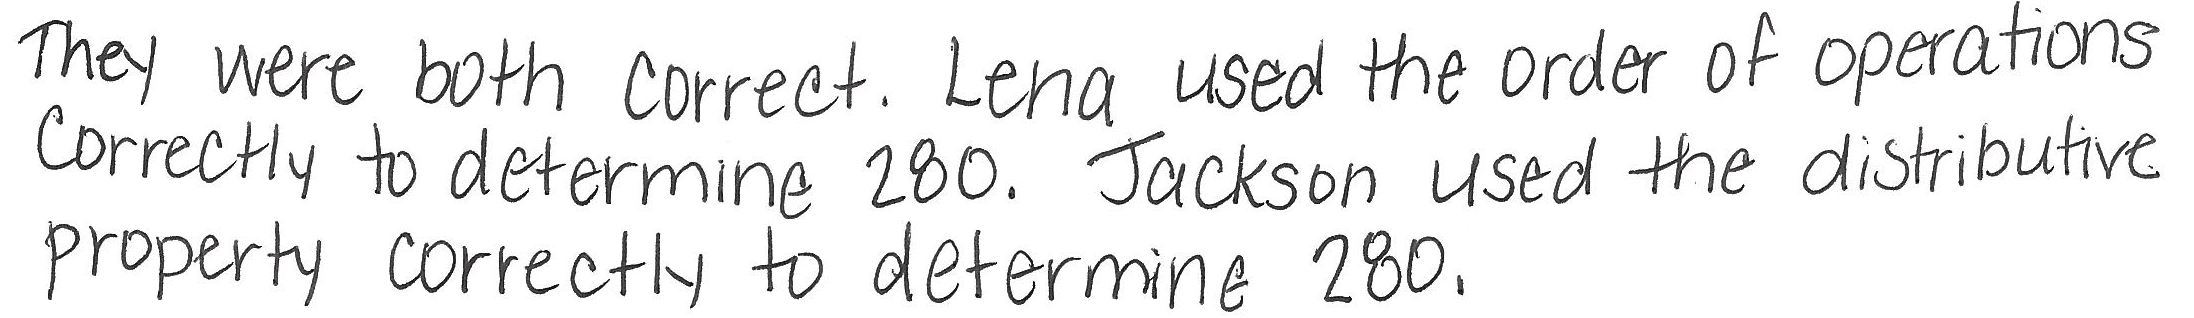 They were both correct. Lena used the order of operations
Correctly to determine 280. Jackson used the distributive
property correctly to determine 280.